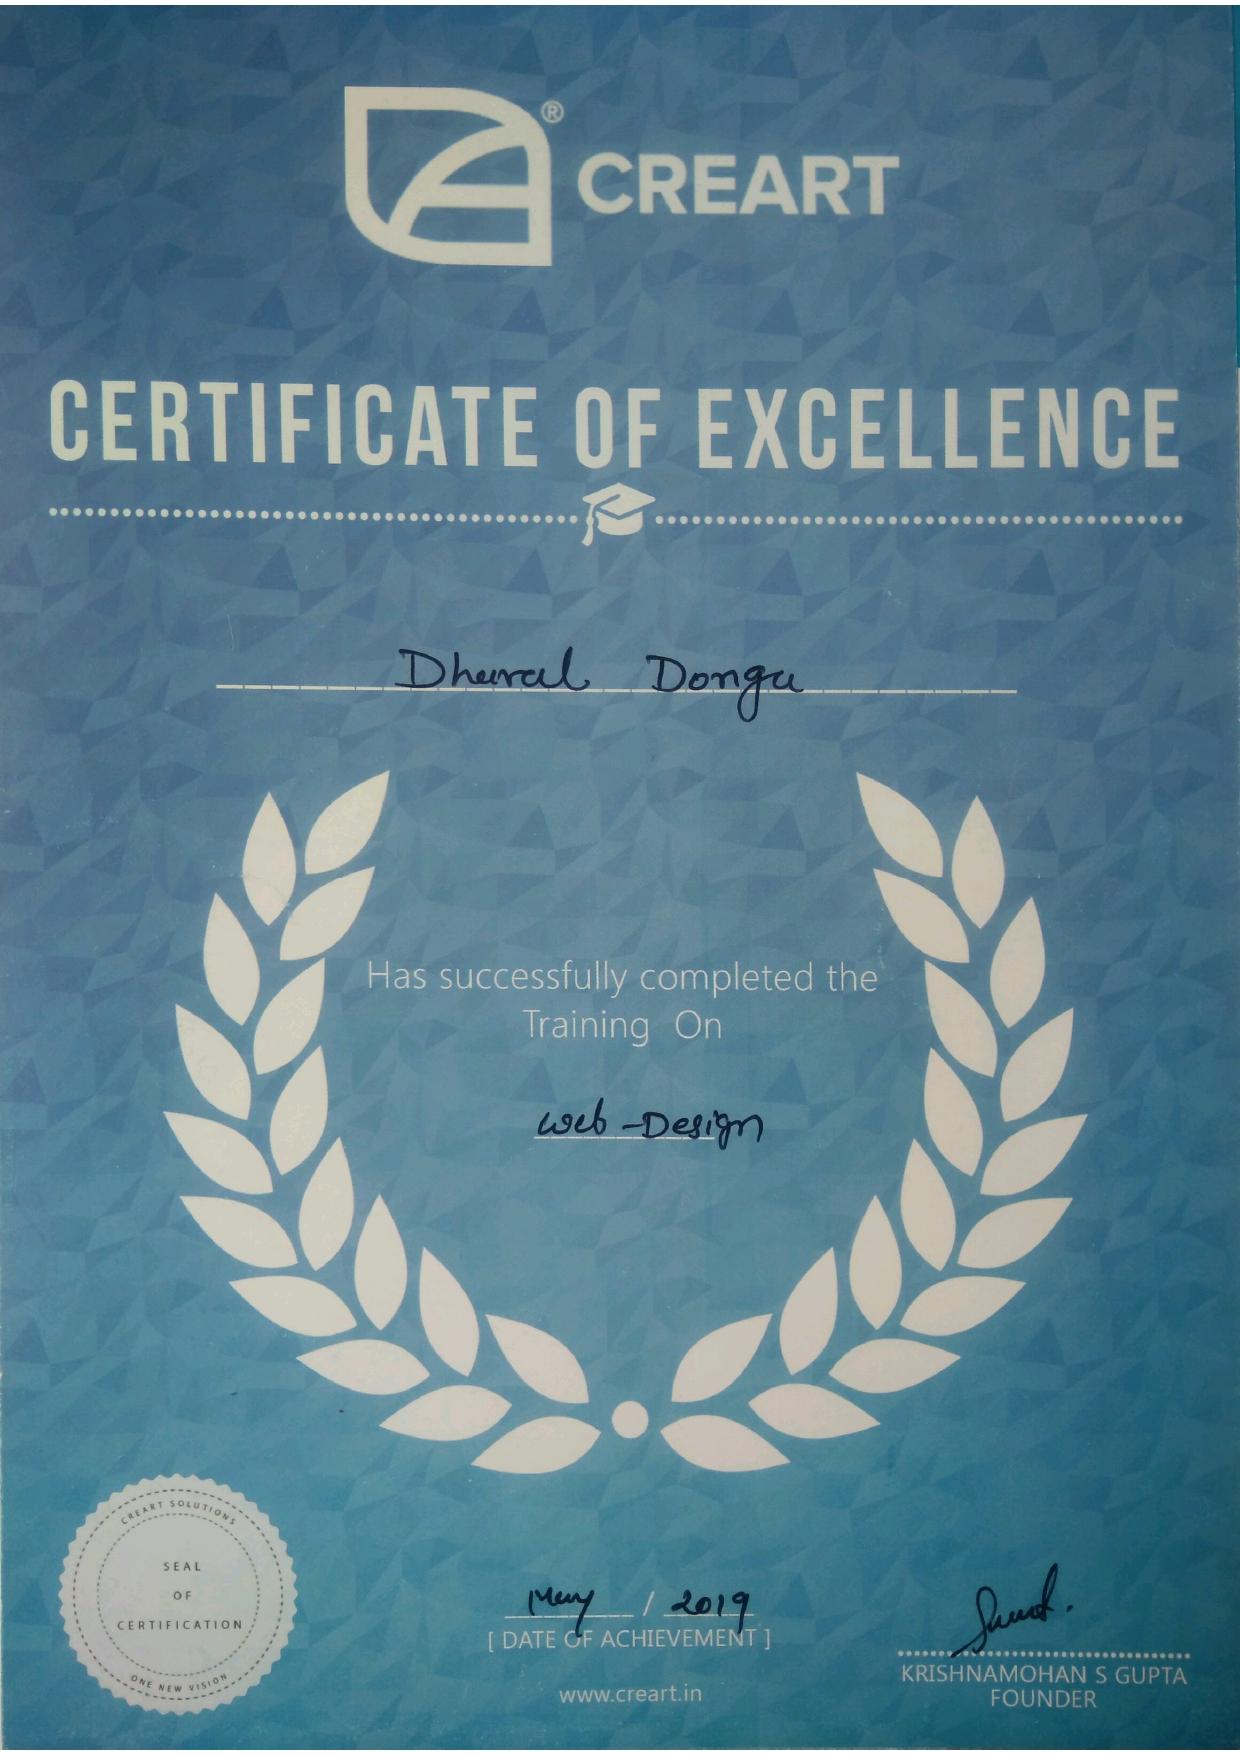 ®
CREART
CERTIFICATE OF EXCELLENCE
Dhaval Donga
Has successfully completed the
Training On
Web-Design
CREART SOLUTIONS
SEAL
OF
CERTIFICATION
ONE NEW VISION
May / 2019
[ DATE OF ACHIEVEMENT ]
www.creart.in
KRISHNAMOHAN S GUPTA
FOUNDER